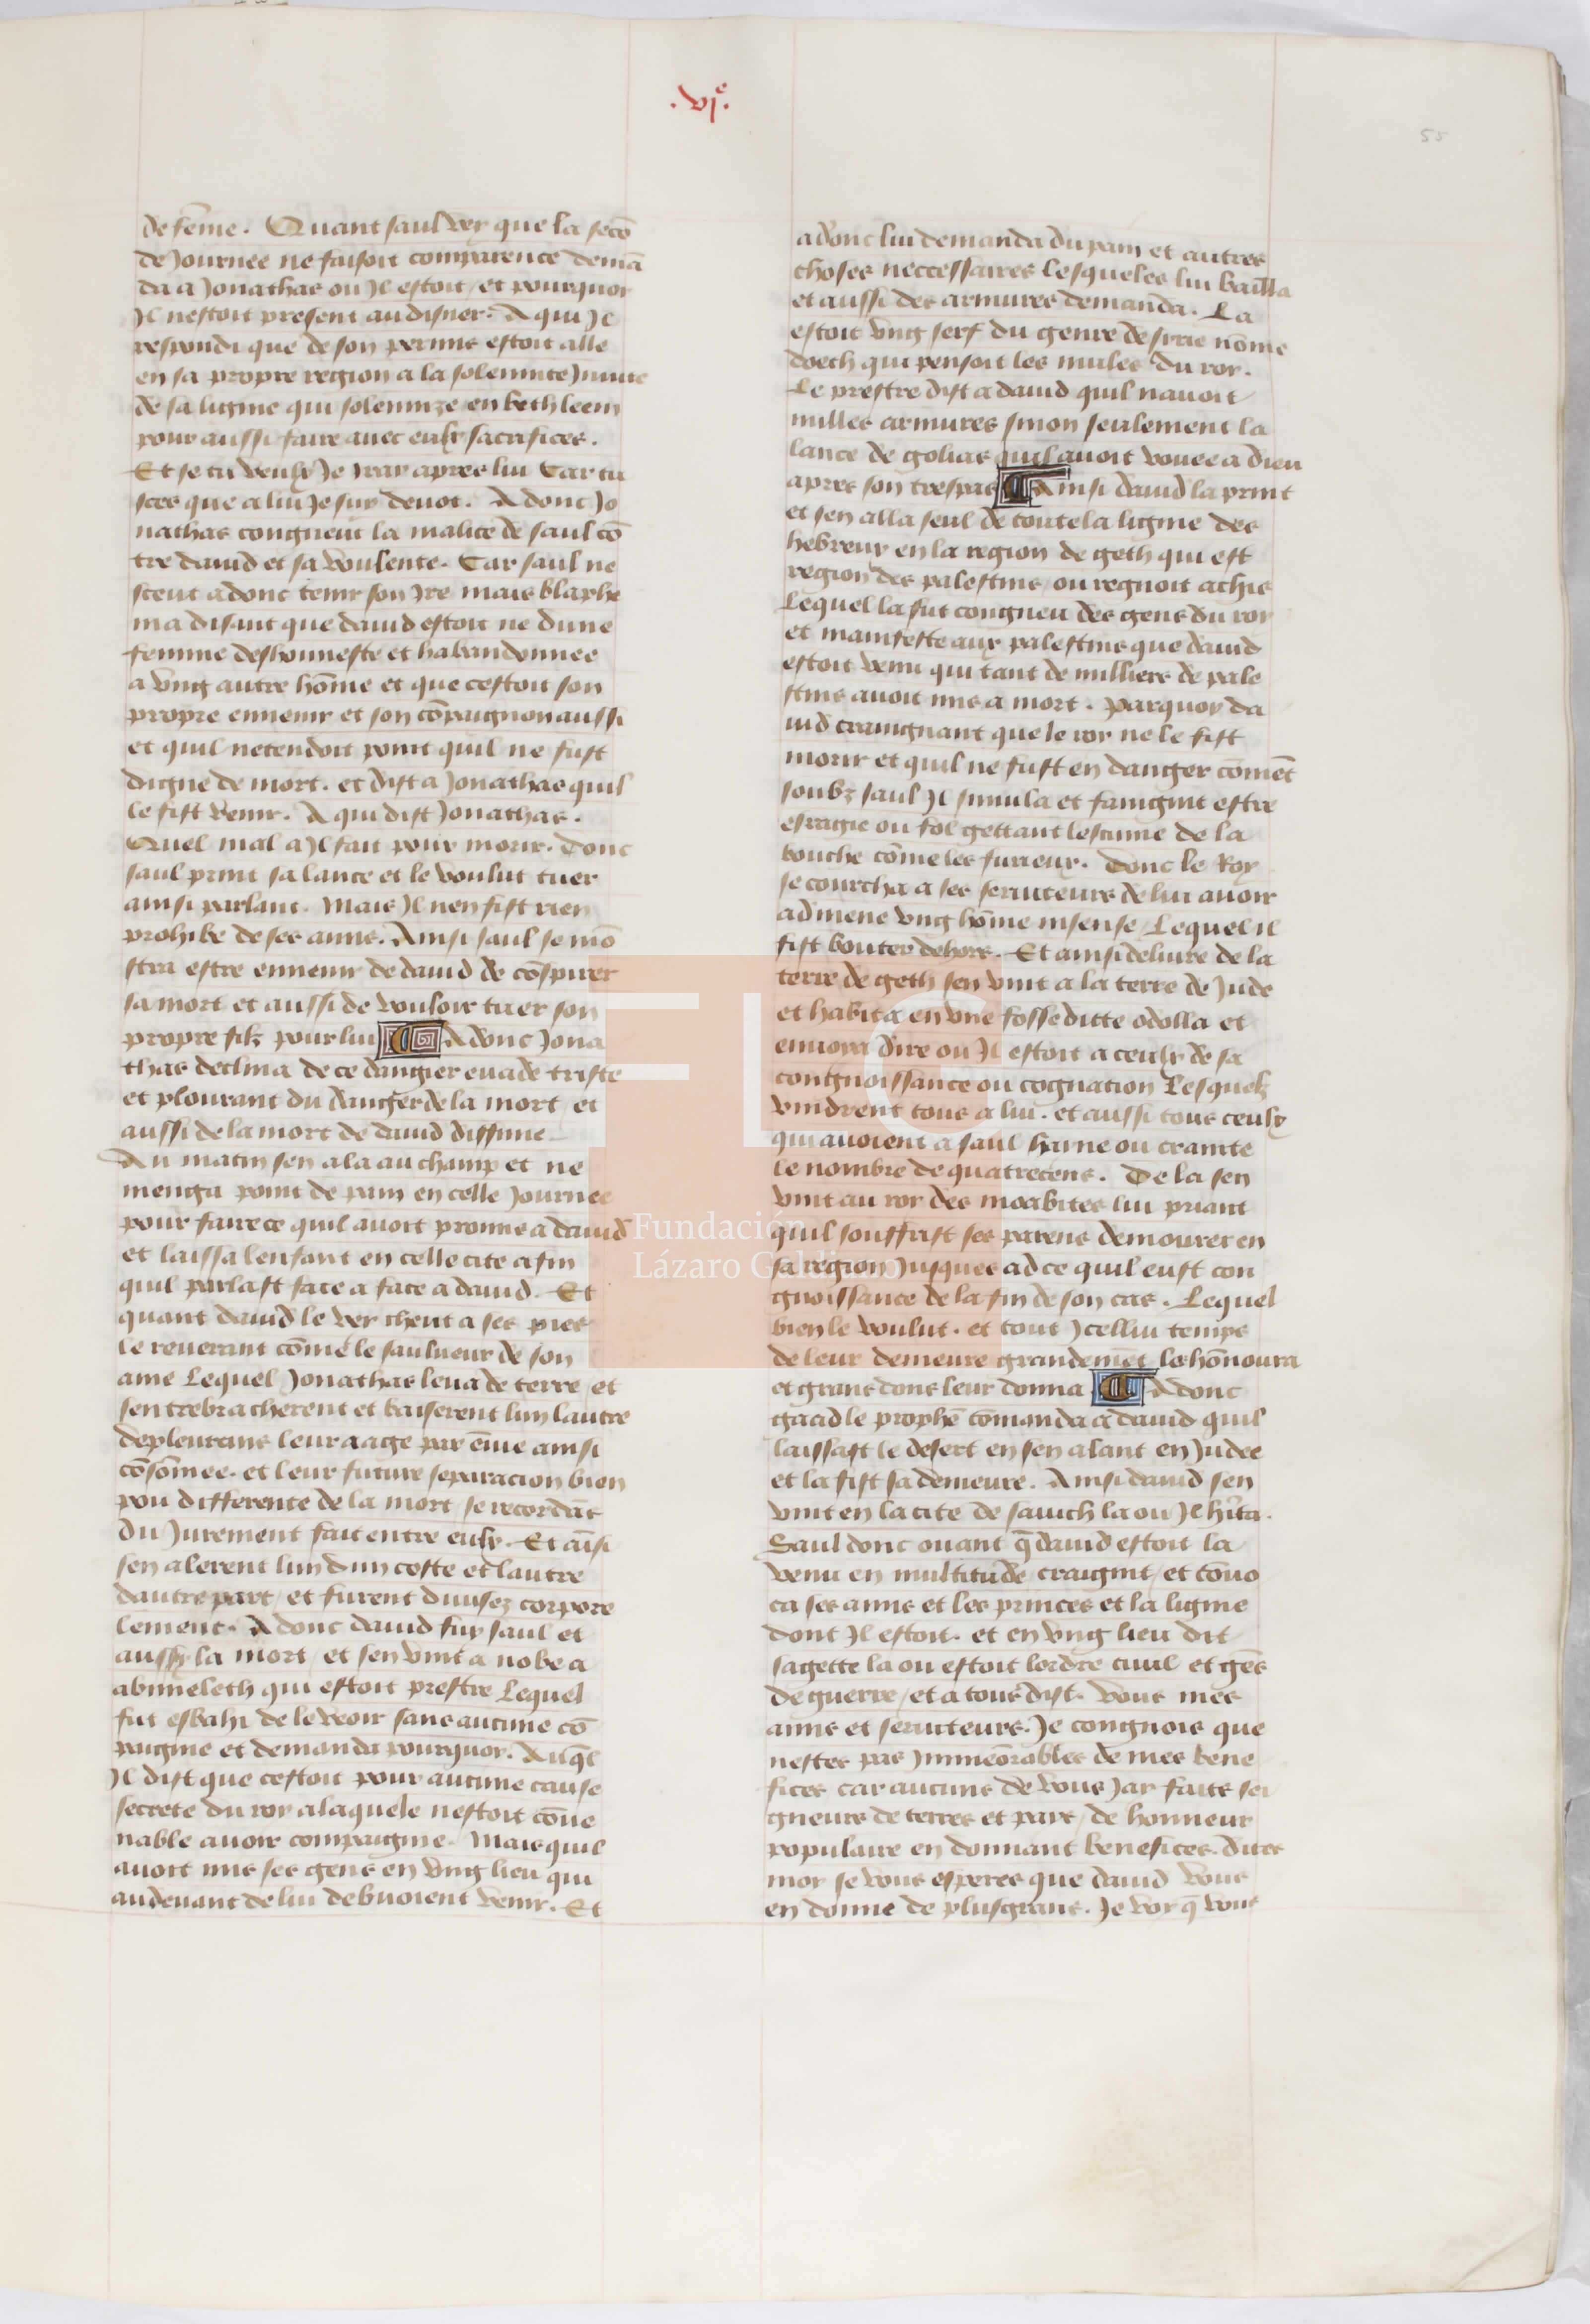 .vjᵉ.
55
de fēme. Quant saul vey que la secō
de Journee ne faisoit comparence demā
da a Jonathas ou Jl estoit / et pourquoy
Jl nestoit present au disner. A qui Jl
respondi que de son permis estoit alle
en sa propre region a la solemnite
de sa lignie qui solemnize en bethleem
pour aussi faire auec eulx sacrifices.
Et se tu veulx Je Jray apres lui Car tu
sces que a lui Je suy deuot. Adonc Jo
nathas congneut la malice de saul cō
tre dauid et sa voulente. Car saul ne
sceut adonc tenir son Jre mais blasphe
ma disant que dauid estoit ne dune
femme deshonneste et habandonnee
a vng autre hōme et que cestoit son
propre ennemy et son cōpaignon aussi
et quil netendoit point quil ne fust
digne de mort. et dist a Jonathas quil
le fist venir. A qui dist Jonathas.
Quel mal a Jl fait pour morir. Donc
saul print sa lance et le voulut tuer
ainsi parlant. Mais Jl nen fist rien
prohibe de ses amis. Ainsi saul se mō
stra estre ennemy de dauid de cōspirer
sa mort et aussi de vouloir tuer son
propre filz pour lui Adonc Jona
thas declina de ce dangier euade triste
et plourant du danger de la mort / et
aussi de la mort de dauid diffinie
Au matin sen ala au champ et ne
menga point de pain en celle Journee
pour faire ce quil auoit promis a dauid
et laissa lenfant en celle cite afin
quil parlast face a face a dauid. Et
quant dauid le vey cheut a ses pies
le reuerant cōme le saulueur de son
ame Lequel Jonathas leua de terre / et
sentrebracherent et baiserent lun lautre
depleurans leur aage par ēuie ainsi
cōsōmee. et leur future separacion bien
pou differente de la mort / se recordāt
du Jurement fait entre eulx. Et aīsi
sen alerent lun dun coste et lautre
dautre part / et furent diuisez corpore
lement. Adonc dauid fuy saul et
aussy la mort / et sen vint a nobe a
abimelech qui estoit prestre Lequel
fut esbahi de le veoir sans aucune cō
paignie et demanda pourquoy. Auq̄l
Jl dist que cestoit pour aucune cause
secrete du roy a laquele nestoit cōue
nable auoir compaignie. Mais quil
auoit mis ses gens en vng lieu qui
au deuant de lui debuoient venir. Et
adonc lui demanda du pain et autres
choses neccessaires lesqueles lui bailla
et aussi des armures demanda. La
estoit vng serf du genre de sirie nōme
doech qui pensoit les mules du roy.
Le prestre dist a dauid quil nauoit
nulles armures sinon seulement la
lance de golias quil auoit vouee a dieu
apres son trespas Ainsi dauid la print
et sen alla seul de toute la lignie des
hebreux en la region de geth qui est
region des palestins / ou regnoit achis
Lequel la fut congneu des gens du roy
et manifeste aux palestins que dauid
estoit venu qui tant de milliers de pale
stins auoit mis a mort. Parquoy da
uid craingnant que le roy ne le fist
morir et quil ne fust en danger cōmēt
soubz saul Jl simula et faingnit estre
esragie ou fol gettant lescume de la
bouche cōme les furieux. Donc le Roy
se courcha a ses seruiteurs de lui auoir
admene vng hōme insense / Lequel il
fist bouter dehors. Et ainsi deliure de la
terre de geth sen vint a la terre de Jude
et habita en vne fosse ditte odolla et
enuoya dire ou Jl estoit a ceulx de sa
congnoissance ou cognation Lesquelz
vindrent tous a lui. et aussi tous ceulx
qui auoient a saul hayne ou crainte
le nombre de quatrecens. De la sen
vint au roy des moabites lui priant
quil souffrist ses parens demourer en
sa region Jusques ad ce quil eust con
gnoissance de la fin de son cas. Lequel
bien le voulut. et tout Jcellui temps
de leur demeure grandemēt les hōnoura
et grans dons leur donna Adonc
gaad le prophē cōmanda a dauid quil
laissast le desert en sen alant en Judee
et la fist sa demeure. Ainsi dauid sen
vint en la cite de sauich la ou Jl hīta.
Saul donc ouant q̄ dauid estoit la
venu en multitude craignit / et cōuo
ca ses amis et les princes et la lignie
dont Jl estoit. et en vng lieu dit
sagette la ou estoit lordre ciuil et gēs
de guerre / et a tous dist. Vous mes
amis et seruiteurs. Je congnois que
nestes pas Jmmēorables de mes bene
fices car aucuns de vous Jay faits sei
gneurs de terres et pays / de honneur
populaire en donnant benefices. dites
moy se vous esperes que dauid vous
en donne de plus grans. Je voy q̄ vous
Fundación
Lázaro Galdiano
FLG